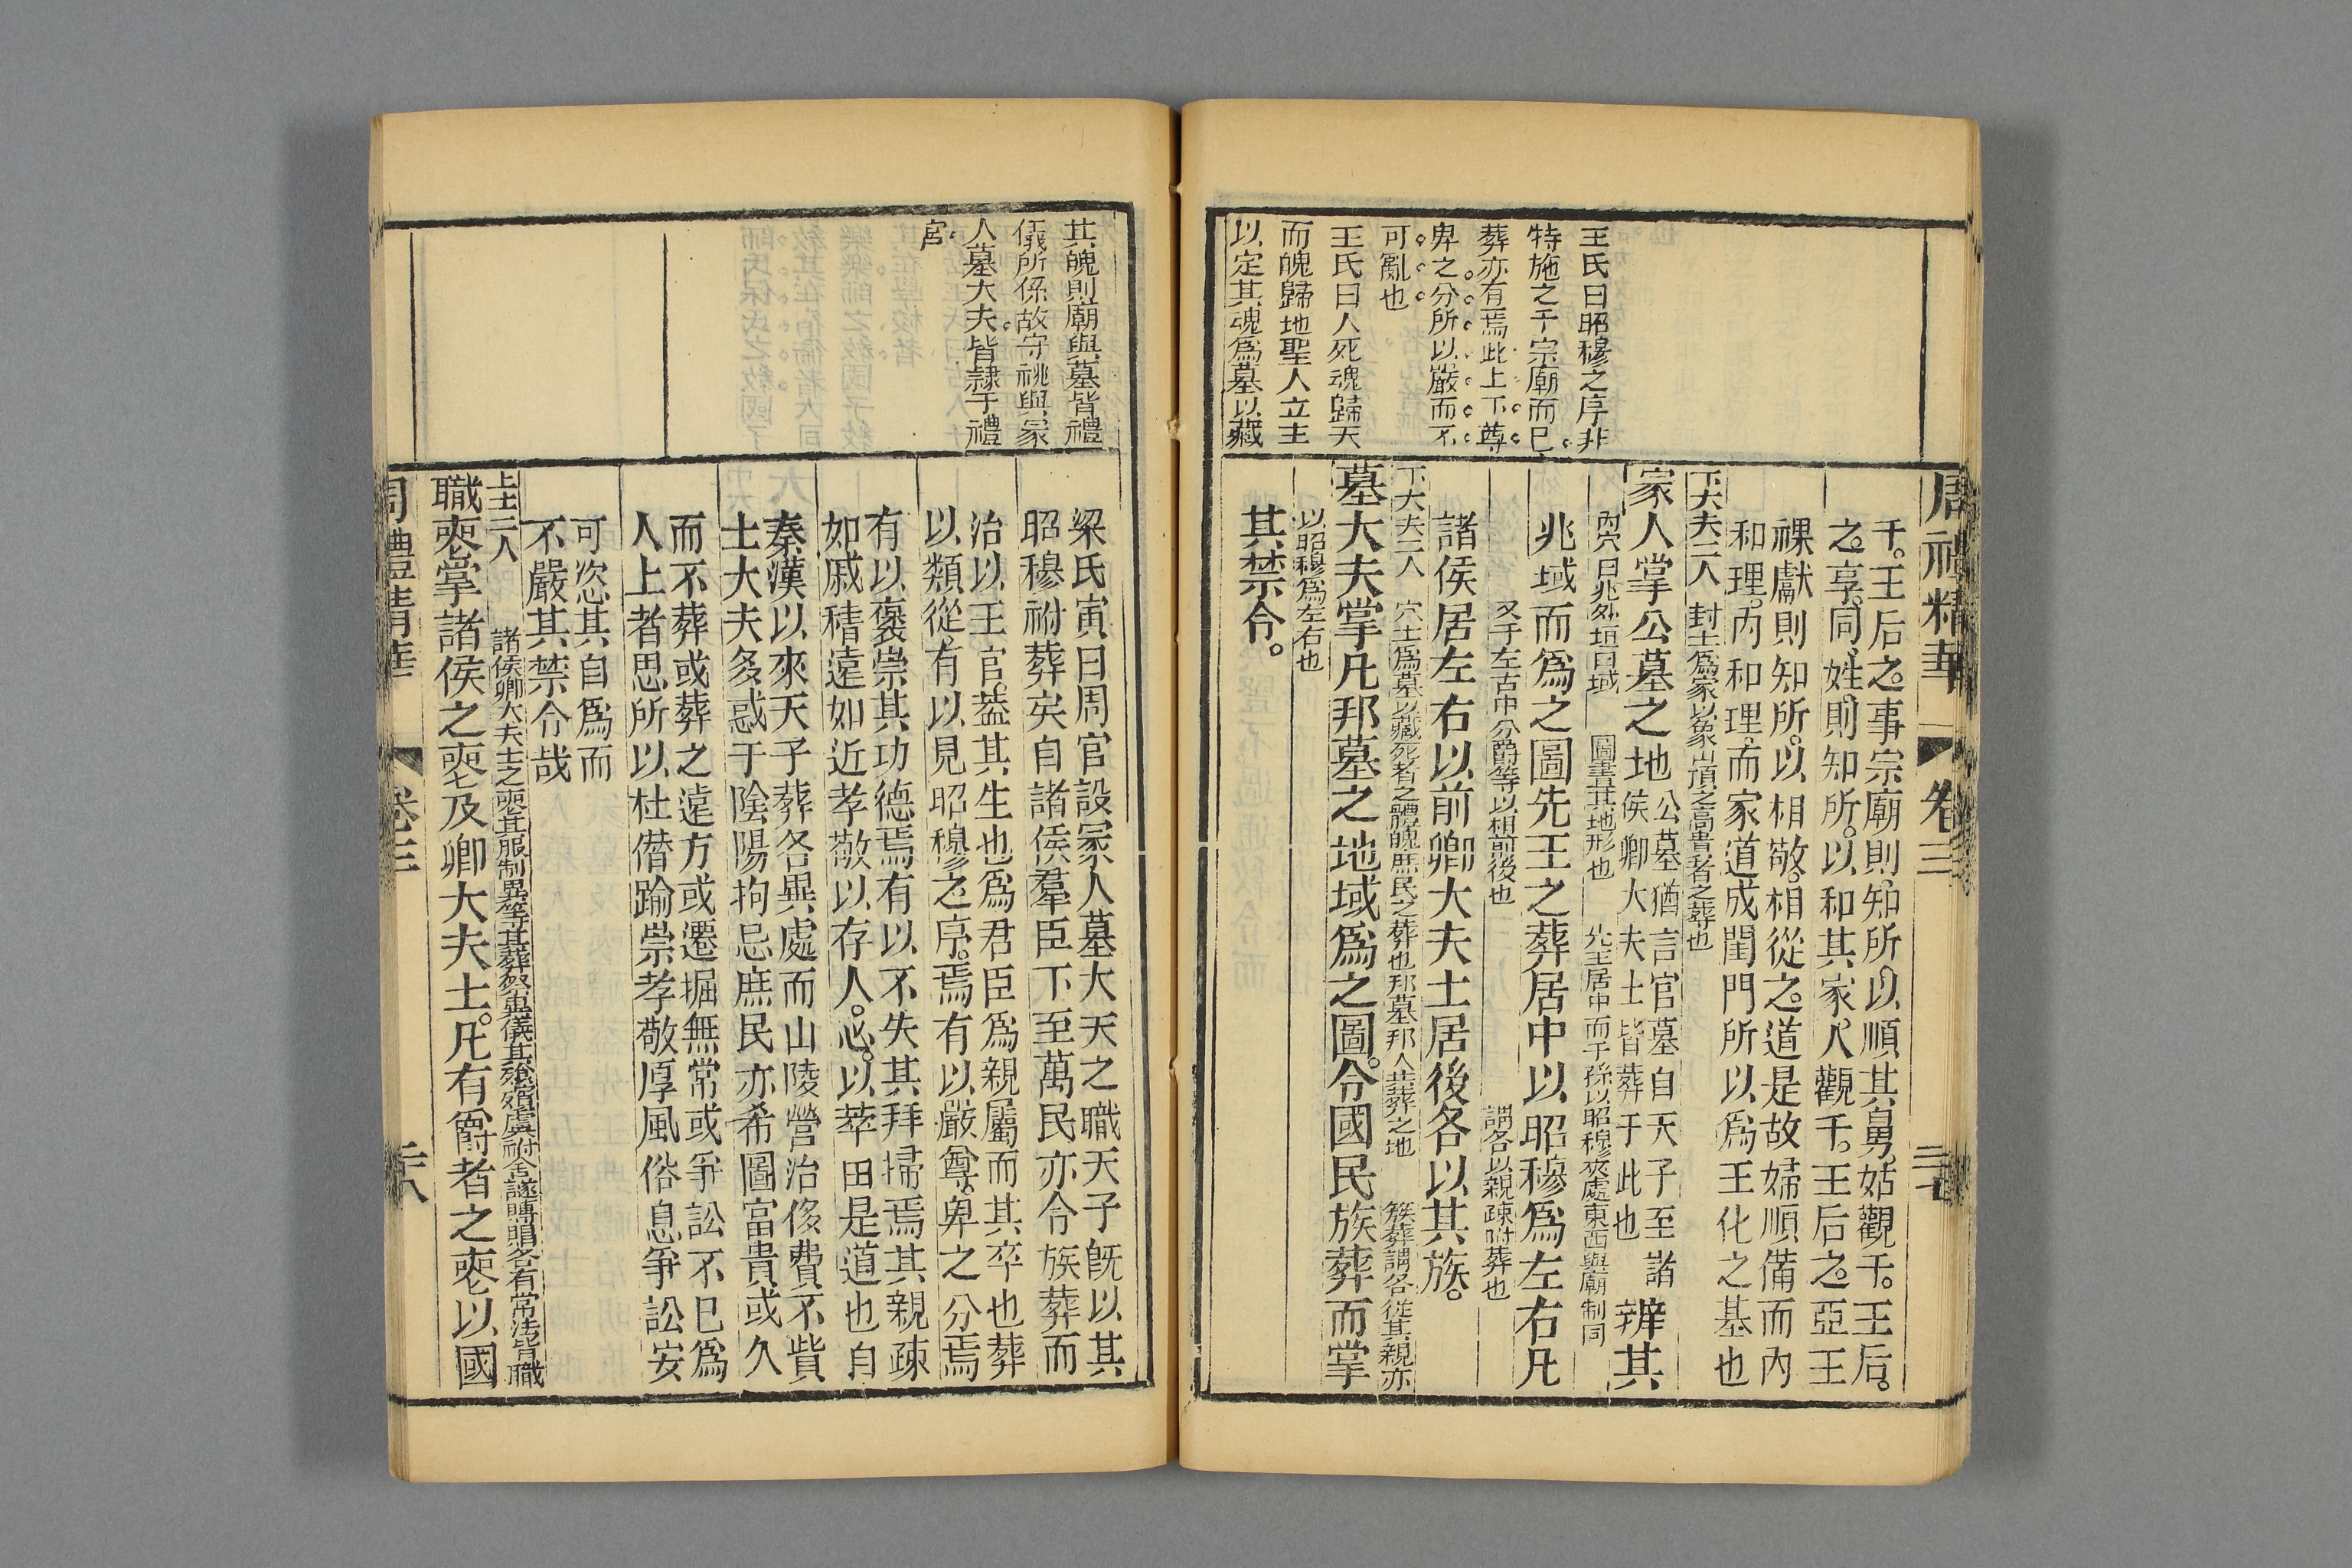 周禮精華
卷三
三七
王氏曰昭穆之序非
特施之于宗廟而已
葬亦有焉此上下尊
卑之分所以嚴而不
可亂也
王氏曰人死魂歸天
而魄歸地聖人立主
以定其魂爲墓以藏
于王后之事宗廟則知所以順其舅姑觀于王后
之享同姓則知所以和其家人觀于王后之亞王
祼獻則知所以相敬相從之道是故婦順備而內
和理內和理而家道成閨門所以爲王化之基也
下大夫二人 封土爲冢以象山頂之高貴者之葬也
冢人掌公墓之地 公墓猶言官墓自天子至諸侯卿大夫士皆葬于此也 辨其
內穴曰兆外垣曰域 圖畫其地形也 先王居中而子孫以昭穆夾處東西與廟制同
兆域而爲之圖先王之葬居中以昭穆爲左右凡
又于左右中分爵等以相前後也 謂各以親疎附葬也
諸侯居左右以前卿大夫士居後各以其族
下大夫二人 穴土爲墓以藏死者之體魄庶民之葬也邦墓邦人共葬之地 族葬謂各從其親亦
墓大夫掌凡邦墓之地域爲之圖令國民族葬而掌
以昭穆爲左右也
其禁令
其魄則廟與墓皆禮
儀所係故守祧與冢
人墓大夫皆隸于禮
官
梁氏寅曰周官設冢人墓大夫之職天子旣以其
昭穆祔葬矣自諸侯羣臣下至萬民亦令族葬而
治以王官葢其生也爲君臣爲親屬而其卒也葬
以類從有以見昭穆之序焉有以嚴尊卑之分焉
有以褒崇其功德焉有以不失其拜掃焉其親疎
如戚積遠如近孝敬以存人心以萃田是道也自
秦漢以來天子葬各異處而山陵營治侈費不貲
士大夫多惑于陰陽拘忌庶民亦希圖富貴或久
而不葬或葬之遠方或遷堀無常或爭訟不已爲
人上者思所以杜僭踰崇孝敬厚風俗息爭訟安
可恣其自爲而
不嚴其禁令哉
上士二人 諸侯卿大夫士之喪其服制異等其葬祭異儀其殮殯虞祔含襚賻賵各有常法皆職
職喪掌諸侯之喪及卿大夫士凡有爵者之喪以國
周禮精華
卷三
三八